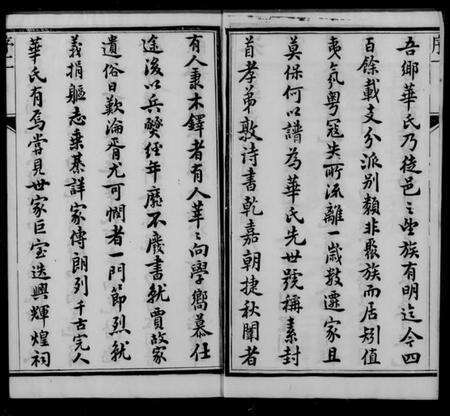 序一
吾鄉華氏乃徒邑之望族有明迄今四
百餘載支分派別類非聚族而居矧值
夷氛粵寇失所流離一歲數遷家且
莫保何以譜為華氏先世號稱素封
首孝弟敦诗書乾嘉朝捷秋闈者
有人秉木鐸者有人華之向學嚮慕仕
途浚以兵燹经年靡不廢書就賈故家
遺俗日歎淪胥尤可憫者一門節烈就
義捐軀志乘綦詳家傳朗列千古完人
華氏有焉嘗見世家巨室迭興輝煌祠
序二